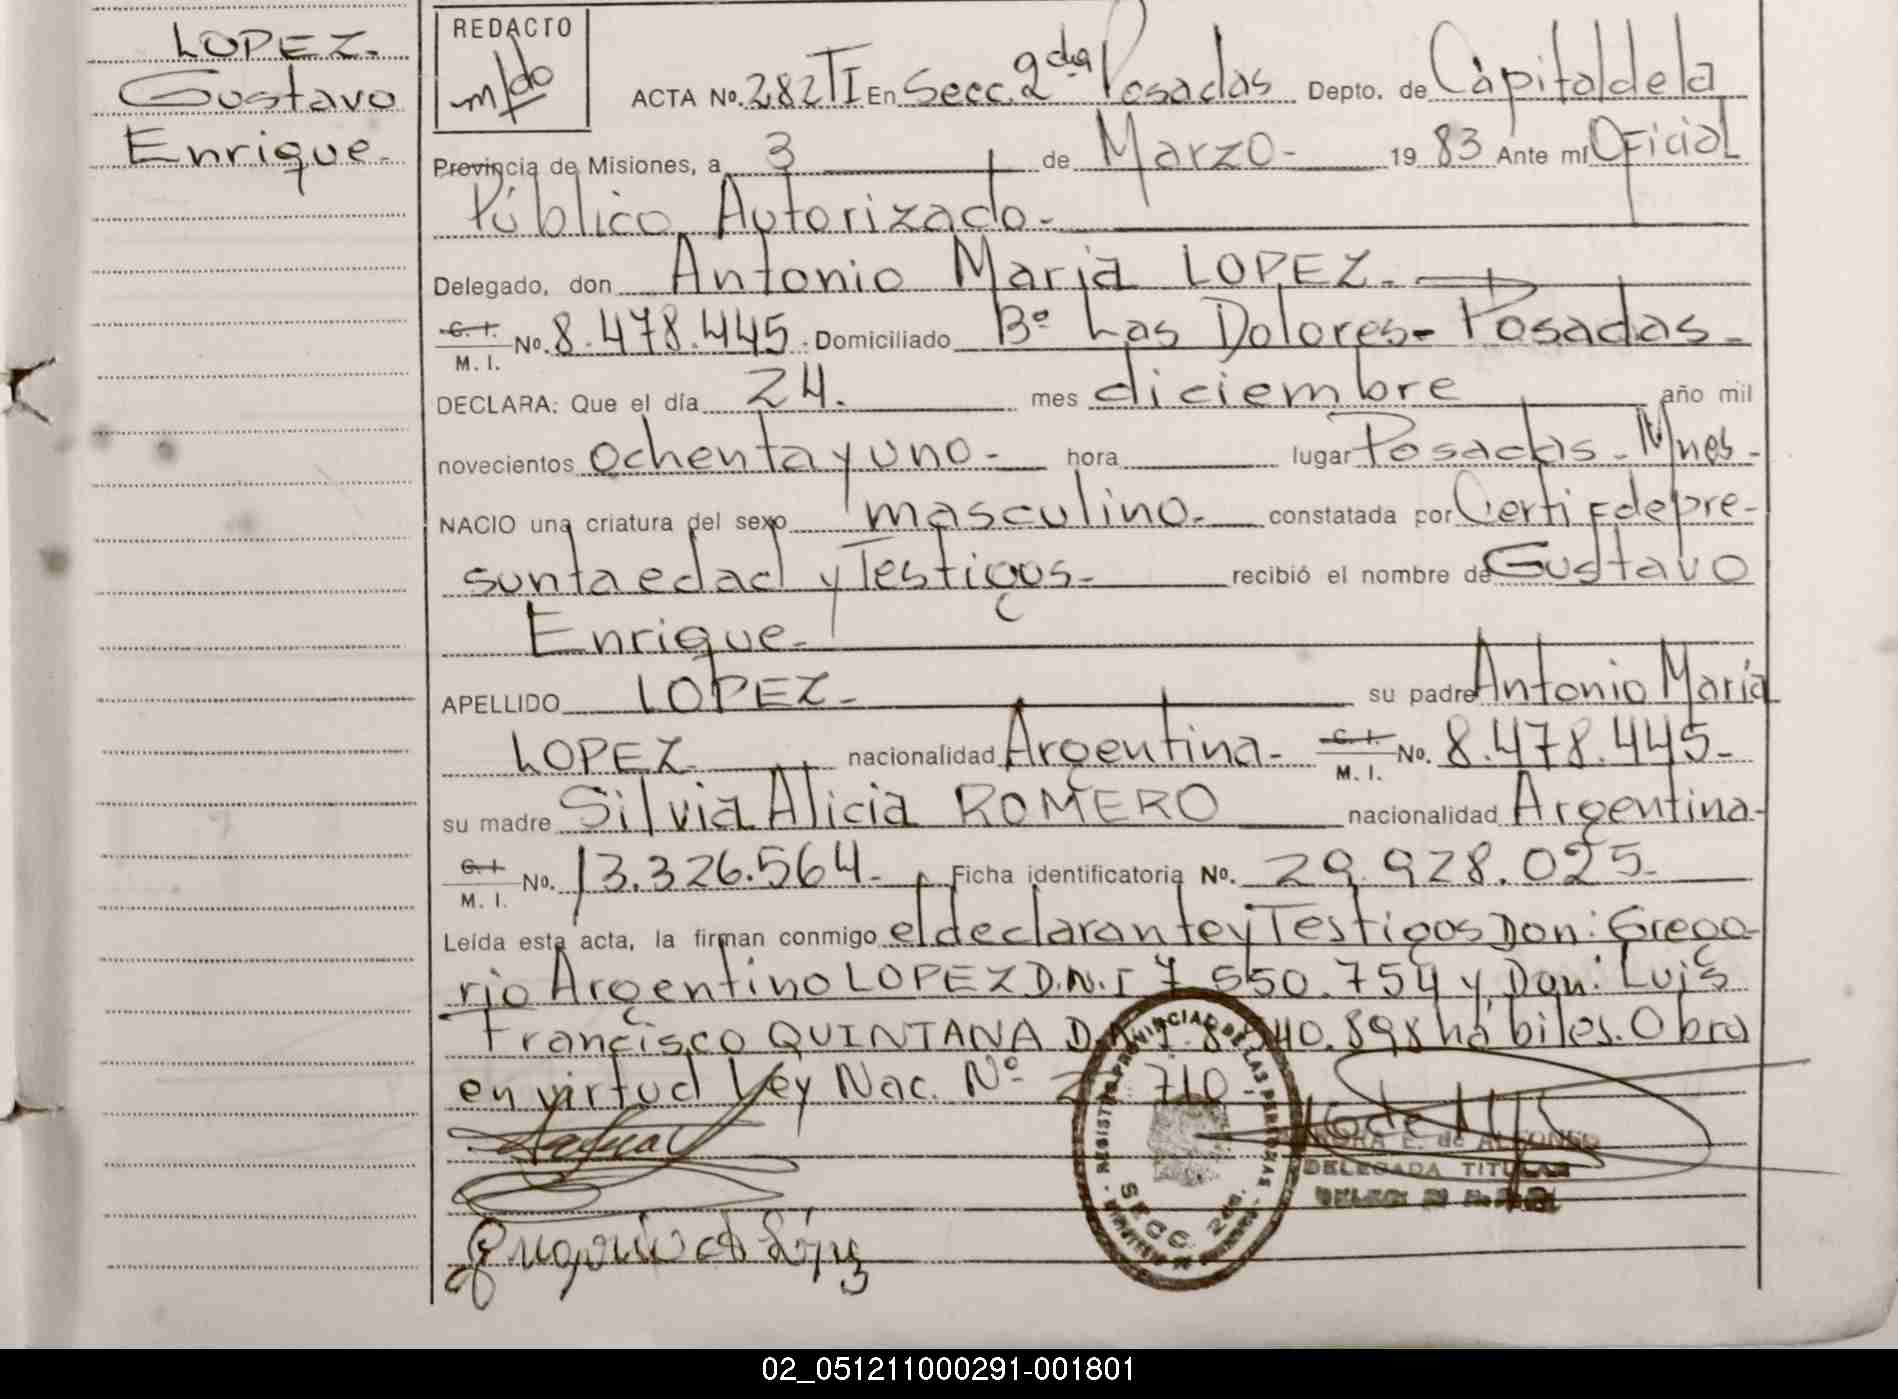 LOPEZ.
Gustavo
Enrique.
REDACTO
ACTA No. 282 TI En Secc. 2da Posadas Depto. de Capital de la
Provincia de Misiones, a 3 de Marzo - 1983 Ante mí Oficial
Público Autorizado -
Delegado, don Antonio Maria LOPEZ.
C. I.
M. I. No. 8.478.445. Domiciliado Bº Las Dolores - Posadas -
DECLARA: Que el día 24. mes diciembre año mil
novecientos ochenta y uno - hora lugar Posadas - Mnes -
NACIO una criatura del sexo masculino. constatada por Certif de pre-
sunta edad y Testigos - recibió el nombre de Gustavo
Enrique -
APELLIDO LOPEZ - su padre Antonio María
LOPEZ nacionalidad Argentina - C. I.
M. I. No. 8.478.445 -
su madre Silvia Alicia ROMERO nacionalidad Argentina -
C. I.
M. I. No. 13.326.564 - Ficha identificatoria No. 29.928.025 -
Leída esta acta, la firman conmigo el declarante y Testigos Don: Grego-
rio Argentino LOPEZ D.N.I 7.550.754 y Don: Luis
Francisco QUINTANA 40.898 hábiles. Obra
en virtud Ley Nac. Nº 710 -
REGISTRO PROVINCIAL DE LAS PERSONAS
SECC. 2da.
E. de
DELEGADA TITULAR
02_051211000291-001801